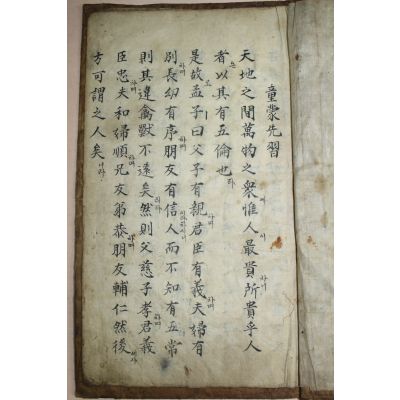 童蒙先習
天地之間萬物之衆惟人最貴所貴乎人
者以其有五倫也
是故孟子曰父子有親君臣有義夫婦有
別長幼有序朋友有信人而不知有五常
則其違禽獸不遠矣然則父慈子孝君義
臣忠夫和婦順兄友弟恭朋友輔仁然後
方可謂之人矣